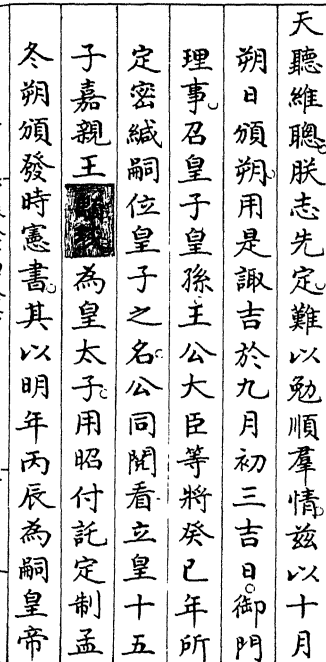 天聽維聰朕志先定難以勉順羣情茲以十月
朔日頒朔用是諏吉於九月初三吉日御門
理事召皇子皇孫王公大臣等將癸巳年所
定密緘嗣位皇子之名公同閱看立皇十五
子嘉親王為皇太子用昭付託定制孟
冬朔頒發時憲書其以明年丙辰為嗣皇帝